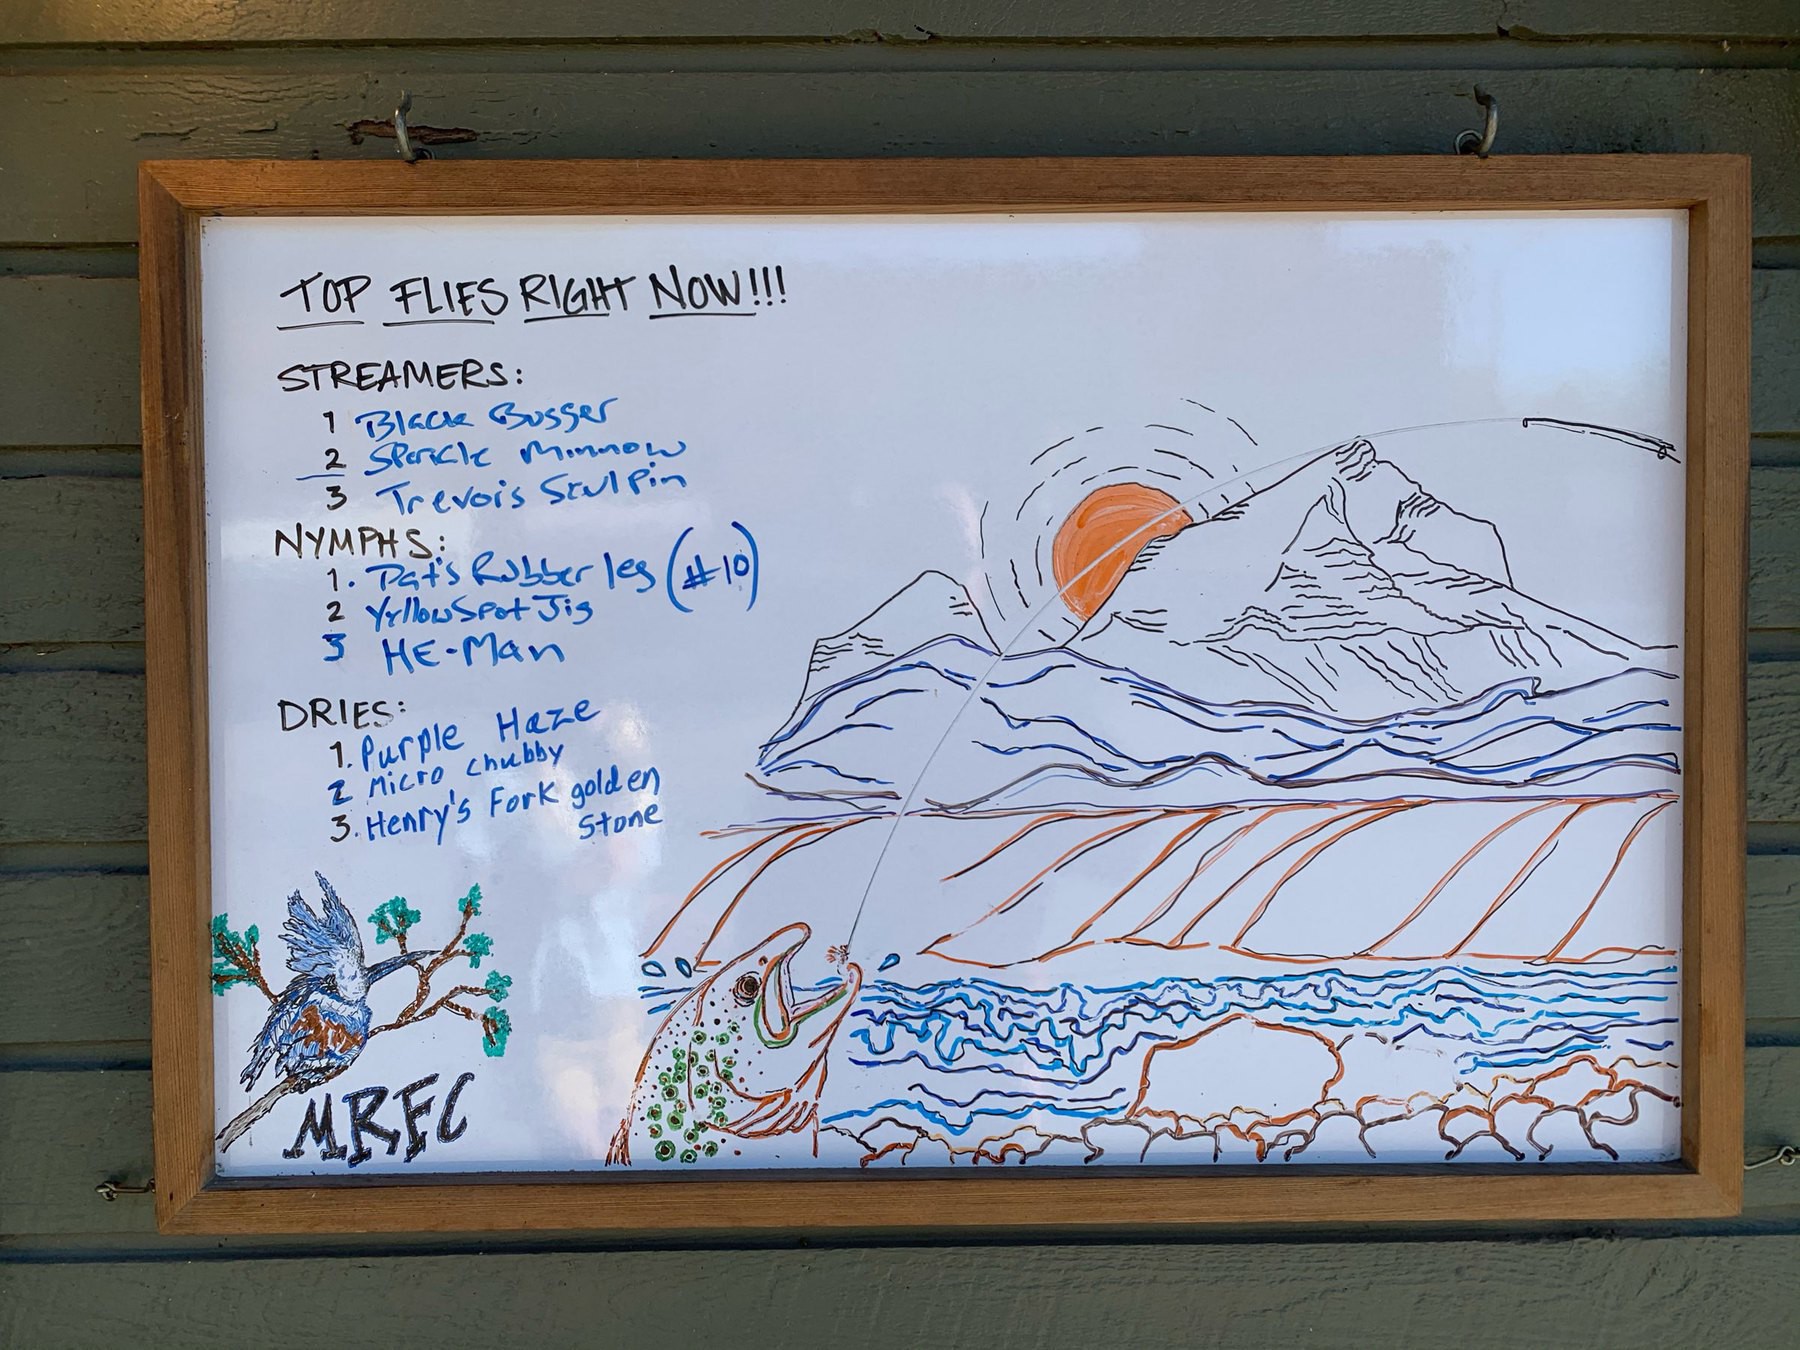 TOP FLIES RIGHT NOW!!!
STREAMERS:
1 Black Bugger
2 Sparkle Minnow
3 Trevor's Sculpin
NYMPHS:
1. Pat's Rubber leg (#10)
2 Yellow Spot Jig
3 HE-Man
DRIES:
1. Purple Haze
2 Micro chubby
3. Henry's Fork golden
Stone
MRFC